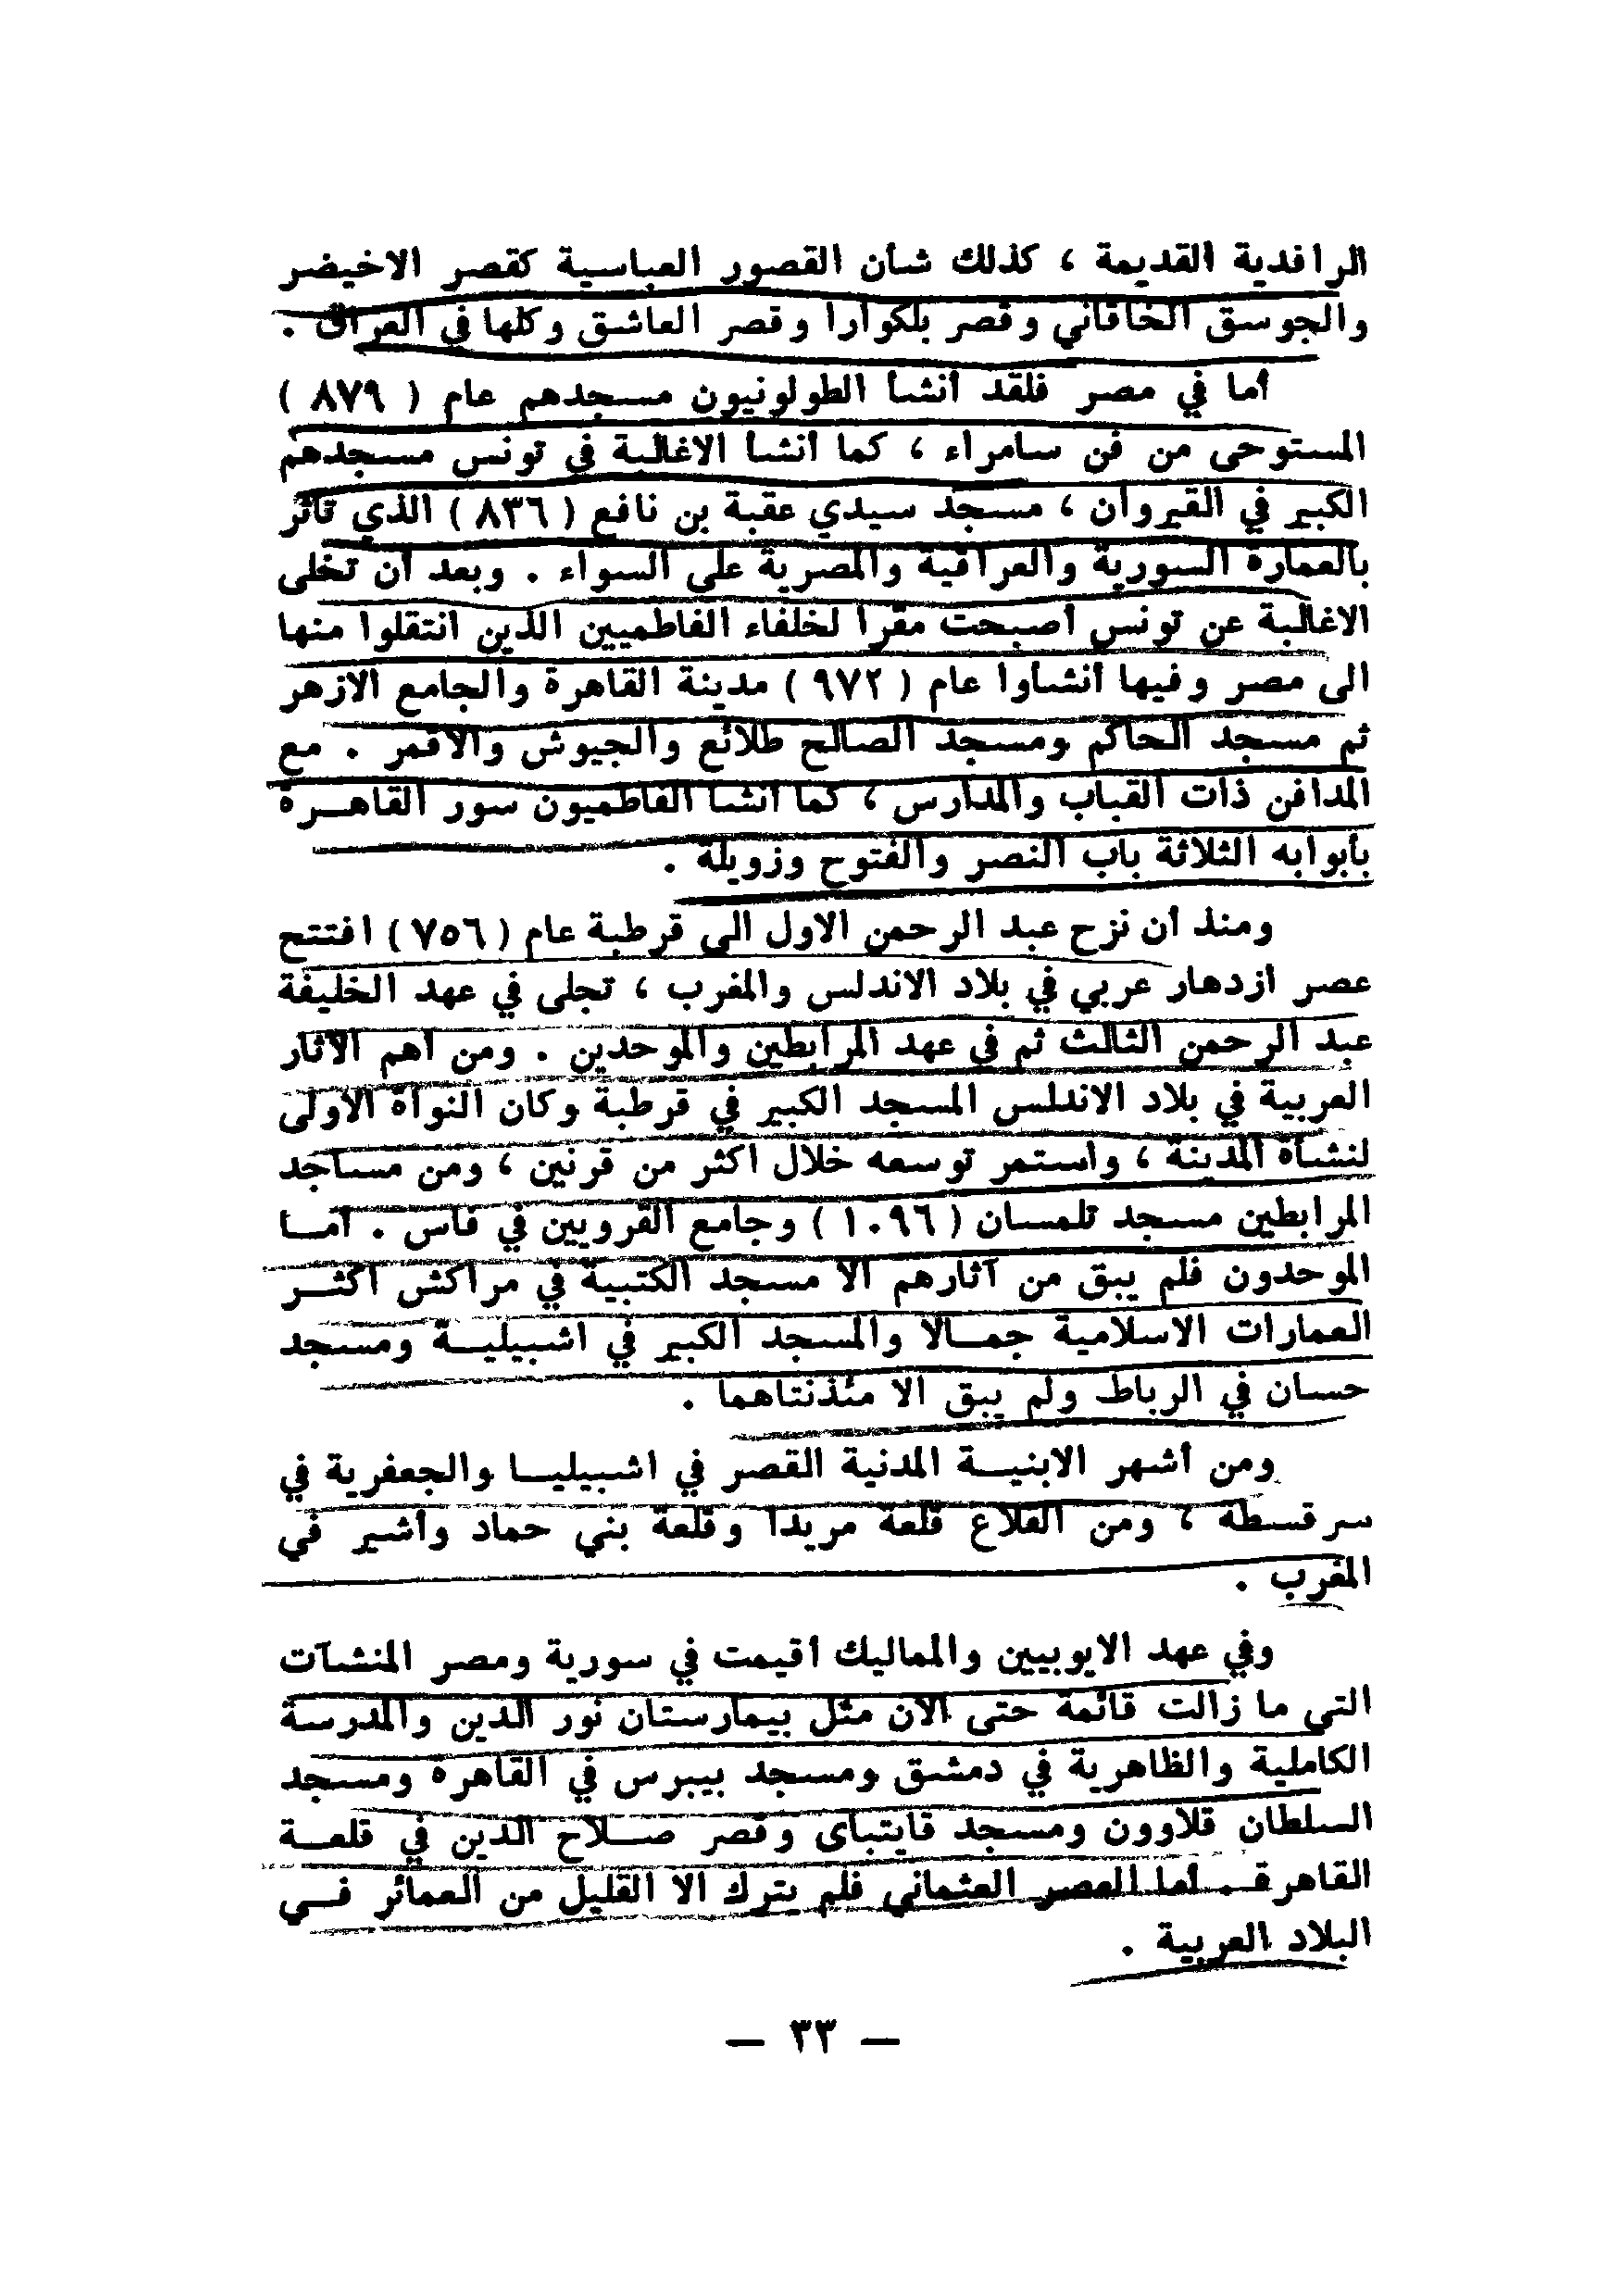 الرافدية القديمة ، كذلك شأن القصور العباسية كقصر الاخيضر
والجوسق الخاقاني وقصر بلكوارا وقصر العاشق وكلها في العراق .
أما في مصر فلقد أنشأ الطولونيون مسجدهم عام ( ٨٧٩ )
المستوحى من فن سامراء ، كما أنشأ الاغالبة في تونس مسجدهم
الكبير في القيروان ، مسجد سيدي عقبة بن نافع ( ٨٣٦ ) الذي تأثر
بالعمارة السورية والعراقية والمصرية على السواء . وبعد أن تخلى
الاغالبة عن تونس أصبحت مقرا لخلفاء الفاطميين الذين انتقلوا منها
الى مصر وفيها أنشأوا عام ( ٩٧٢ ) مدينة القاهرة والجامع الازهر
ثم مسجد الحاكم ومسجد الصالح طلائع والجيوش والاقمر . مع
المدافن ذات القباب والمدارس ، كما أنشأ الفاطميون سور القاهــرة
بأبوابه الثلاثة باب النصر والفتوح وزويلة .
ومنذ أن نزح عبد الرحمن الاول الى قرطبة عام ( ٧٥٦ ) افتتح
عصر ازدهار عربي في بلاد الاندلس والمغرب ، تجلى في عهد الخليفة
عبد الرحمن الثالث ثم في عهد المرابطين والموحدين . ومن أهم الآثار
العربية في بلاد الاندلس المسجد الكبير في قرطبة وكان النواة الاولى
لنشأة المدينة ، واستمر توسعه خلال أكثر من قرنين ، ومن مساجد
المرابطين مسجد تلمسان ( ١٠٩٦ ) وجامع القرويين في فاس . أمــا
الموحدون فلم يبق من آثارهم الا مسجد الكتبية في مراكش أكثــر
العمارات الاسلامية جمــالا والمسجد الكبير في اشبيليــة ومسجد
حسان في الرباط ولم يبق الا مئذنتاهما .
ومن أشهر الابنيــة المدنية القصر في اشبيليــا والجعفرية في
سرقسطة ، ومن القلاع قلعة مريدا وقلعة بني حماد وأشير في
المغرب .
وفي عهد الايوبيين والمماليك أقيمت في سورية ومصر المنشآت
التي ما زالت قائمة حتى الآن مثل بيمارستان نور الدين والمدرسة
الكاملية والظاهرية في دمشق ومسجد بيبرس في القاهرة ومسجد
السلطان قلاوون ومسجد قايتباى وقصر صــلاح الدين في قلعــة
القاهرة . أما العصر العثماني فلم يترك الا القليل من العمائر فــي
البلاد العربية .
— ٣٣ —